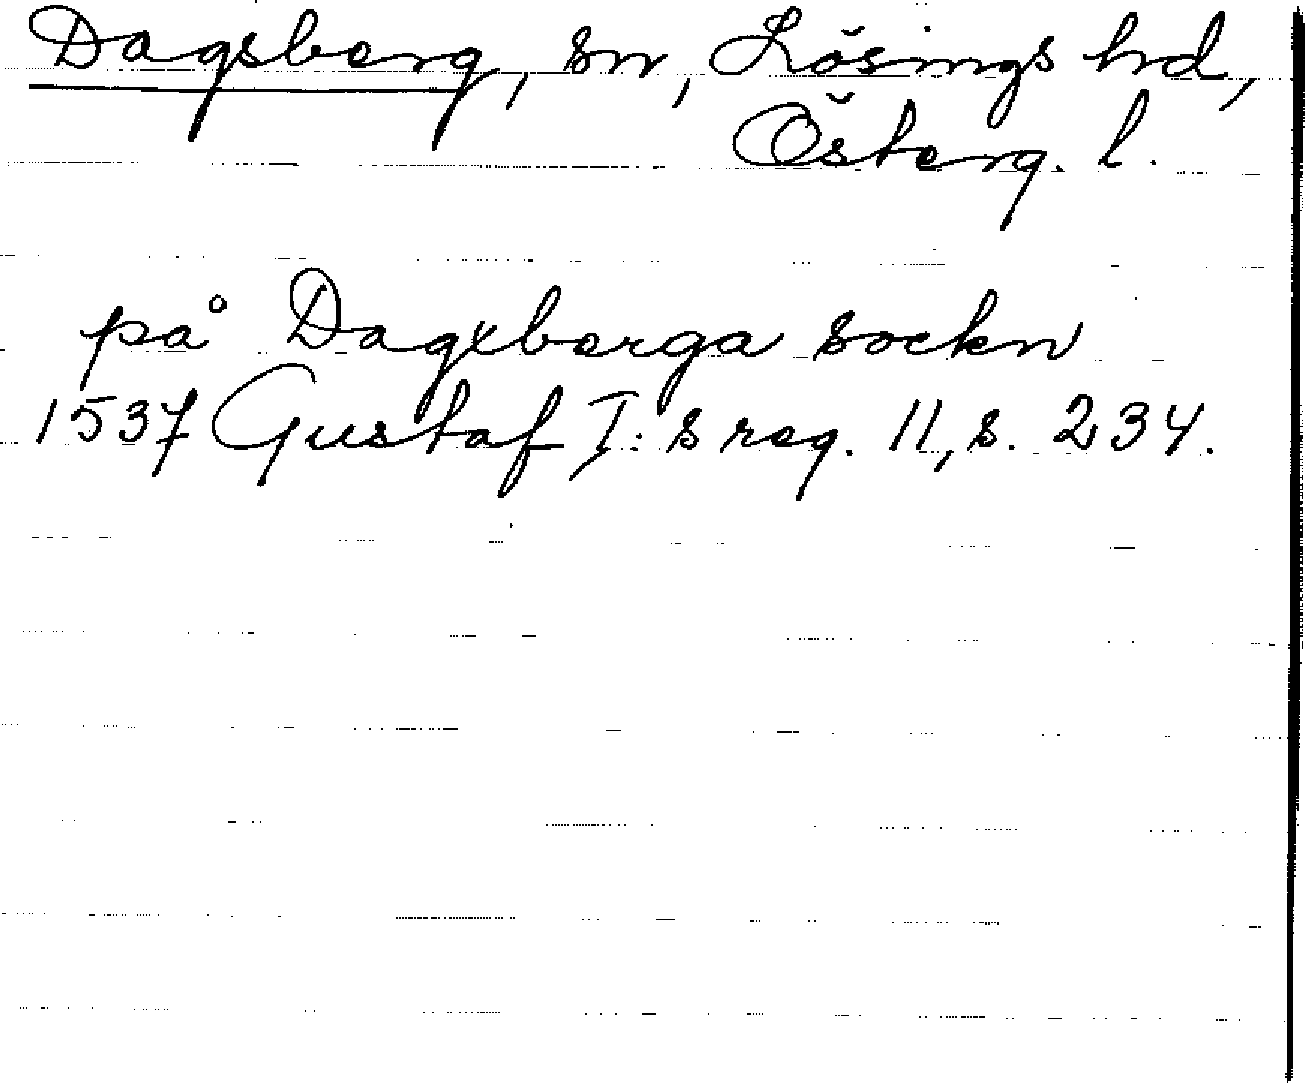 Dagsberg, sn, Lösings hd,
Österg. l.
på Dagxberga sockn
1537 Gustaf I:s reg. 11, s. 234.